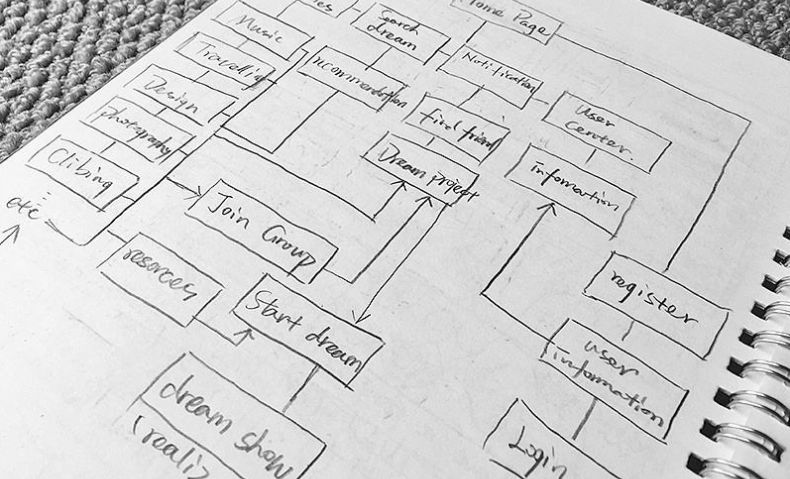 Home Page
Search
dream
Music
Notification
recommendation
Travelling
User
center.
Design
find friend
photography
Dream project
Infomation
Clibing
etc
Join Group
resorces
register
Start dream
user
information
dream show
Login